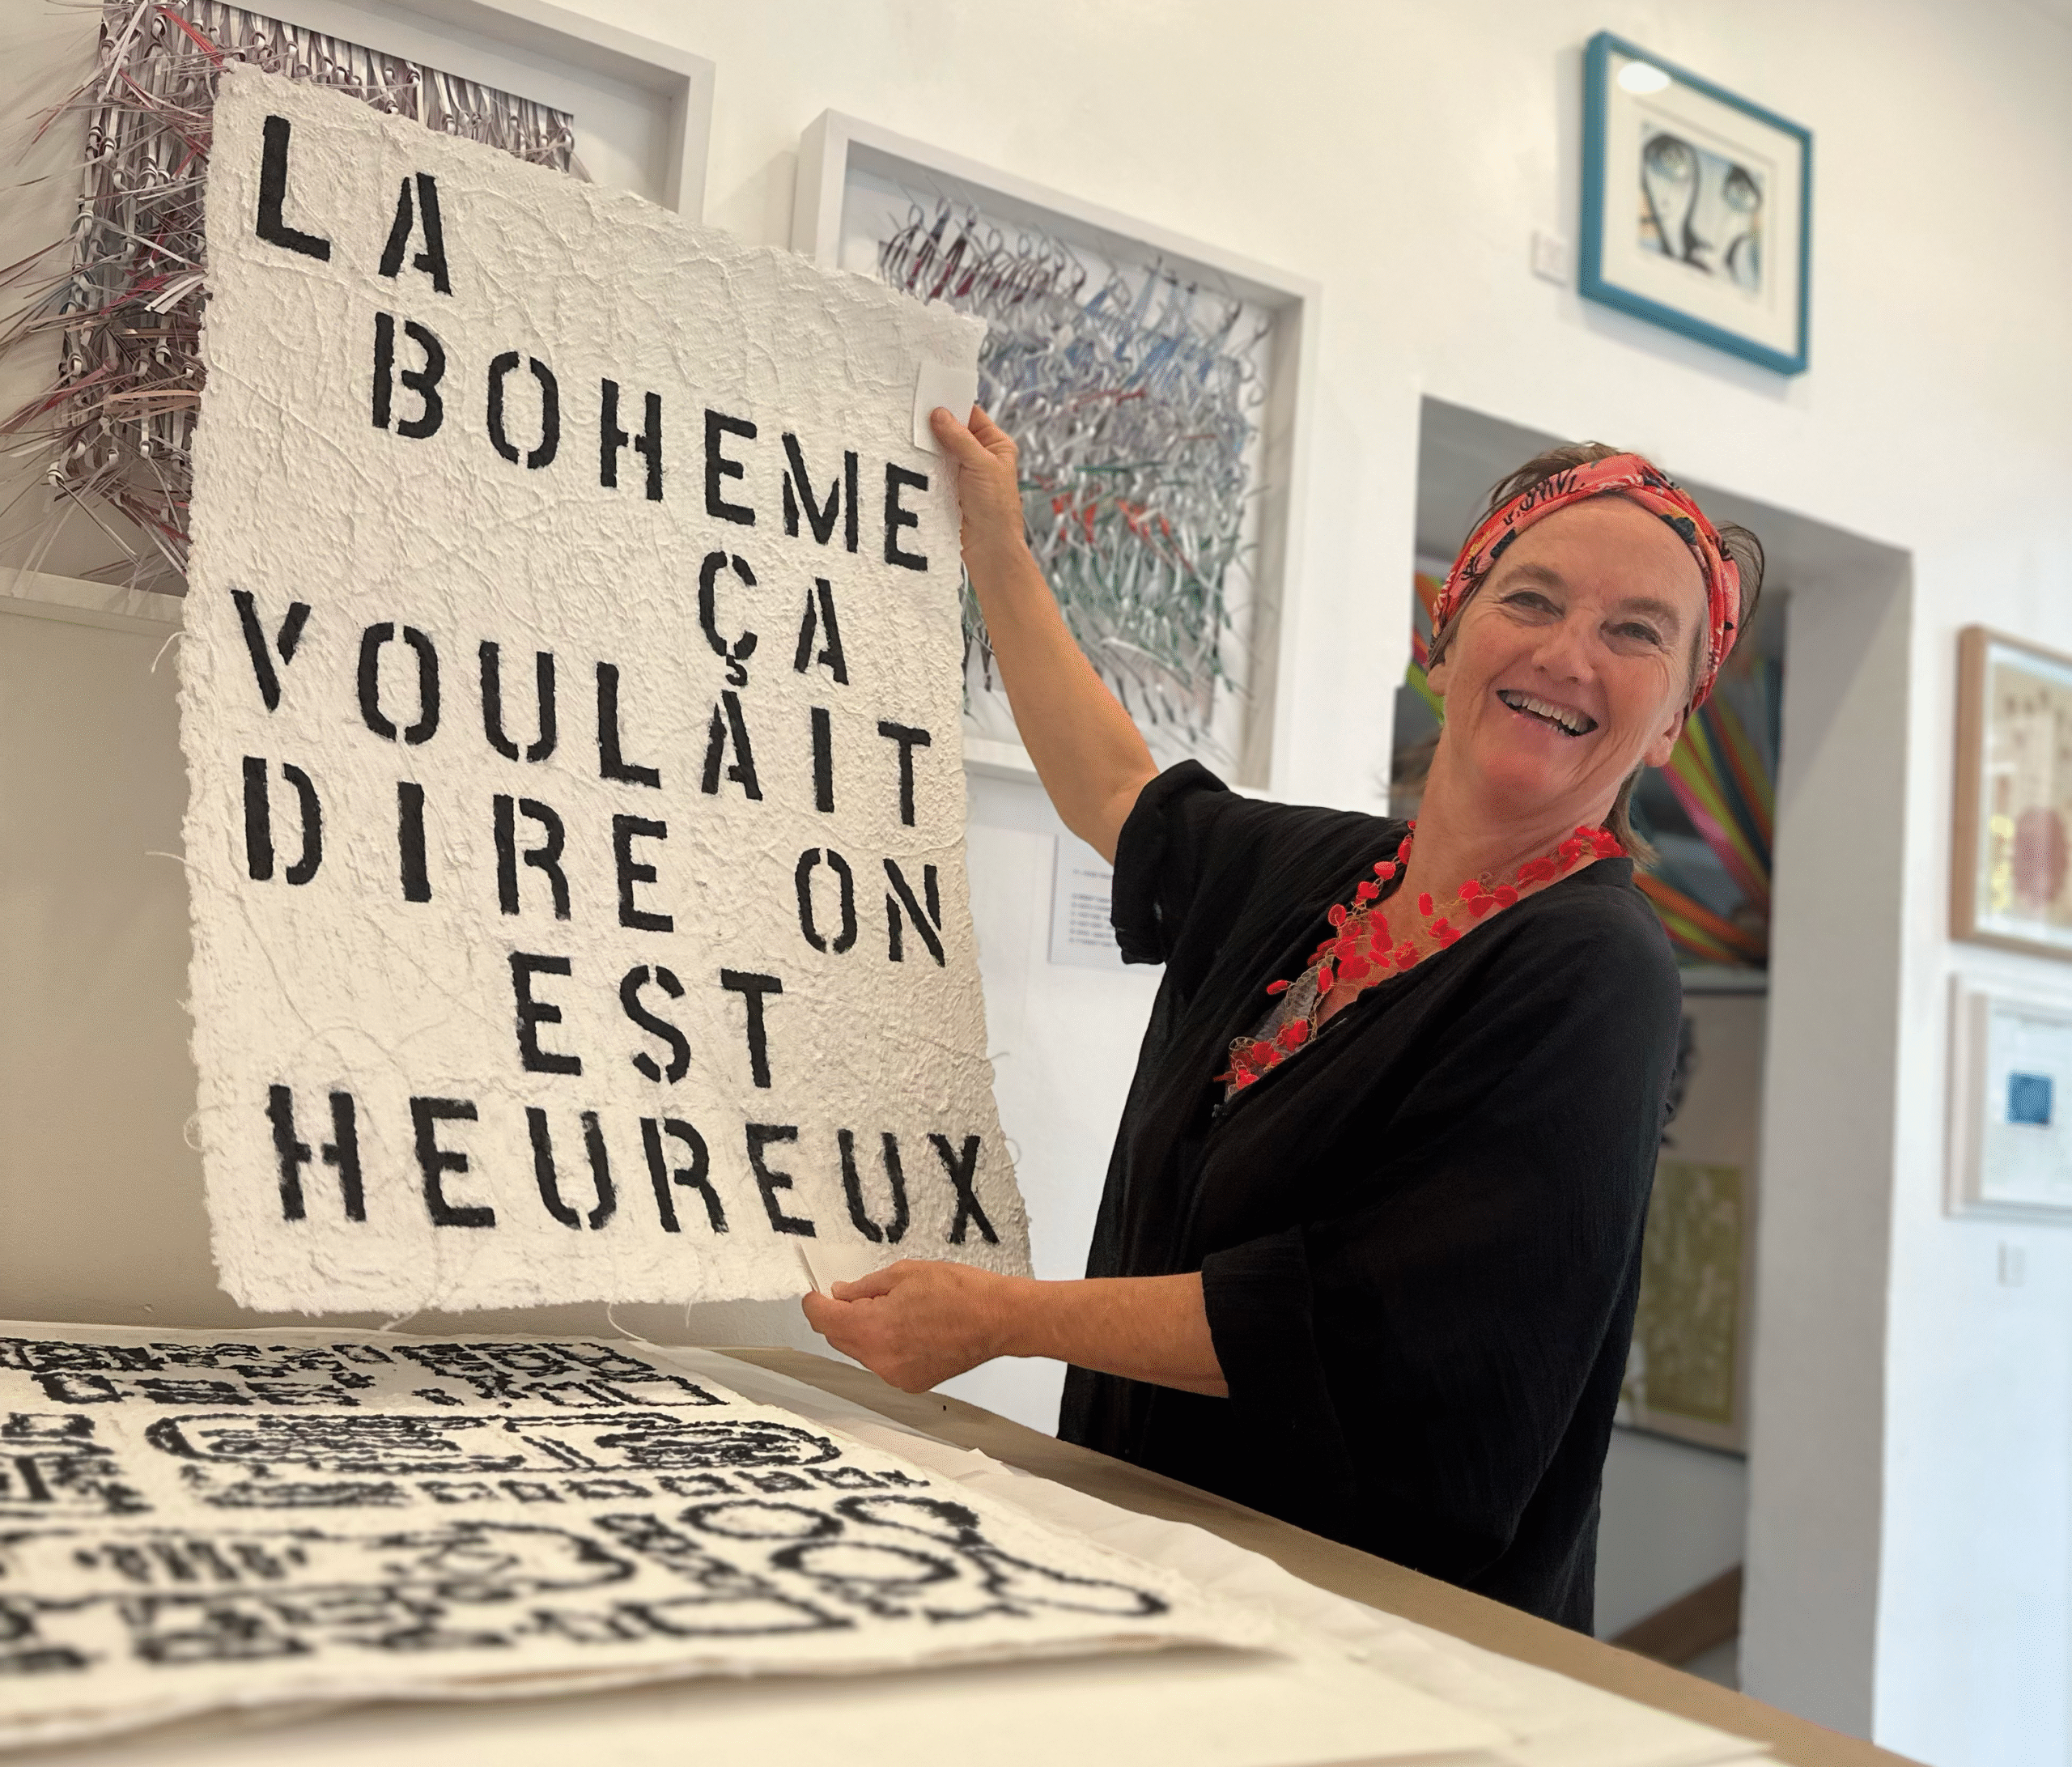 LA
BOHEME
ÇA
VOULAIT
DIRE ON
EST
HEUREUX